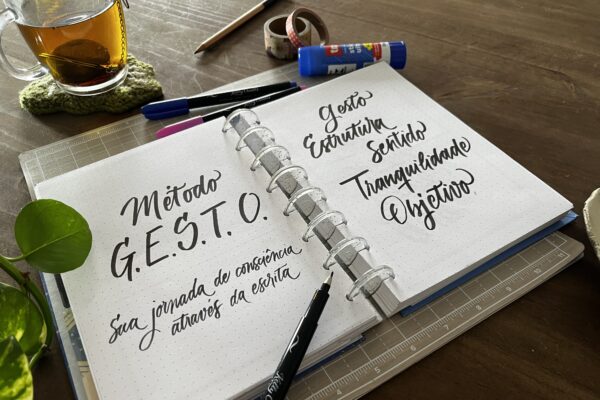 Método
G.E.S.T.O.
Sua jornada de consciência
através da escrita
Gesto
Estrutura
Sentido
Tranquilidade
Objetivo